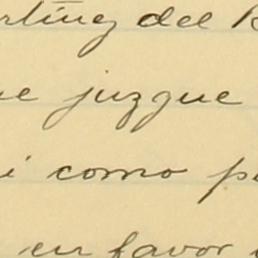 rting del R
e juzgue
i como p
en favor